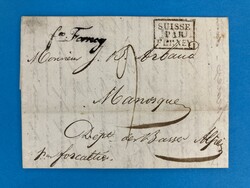 fco Ferney
SUISSE
PAR
FERNEY
Monsieur J. B. Arbaud
Manosque
Dépt. de Basses Alpes